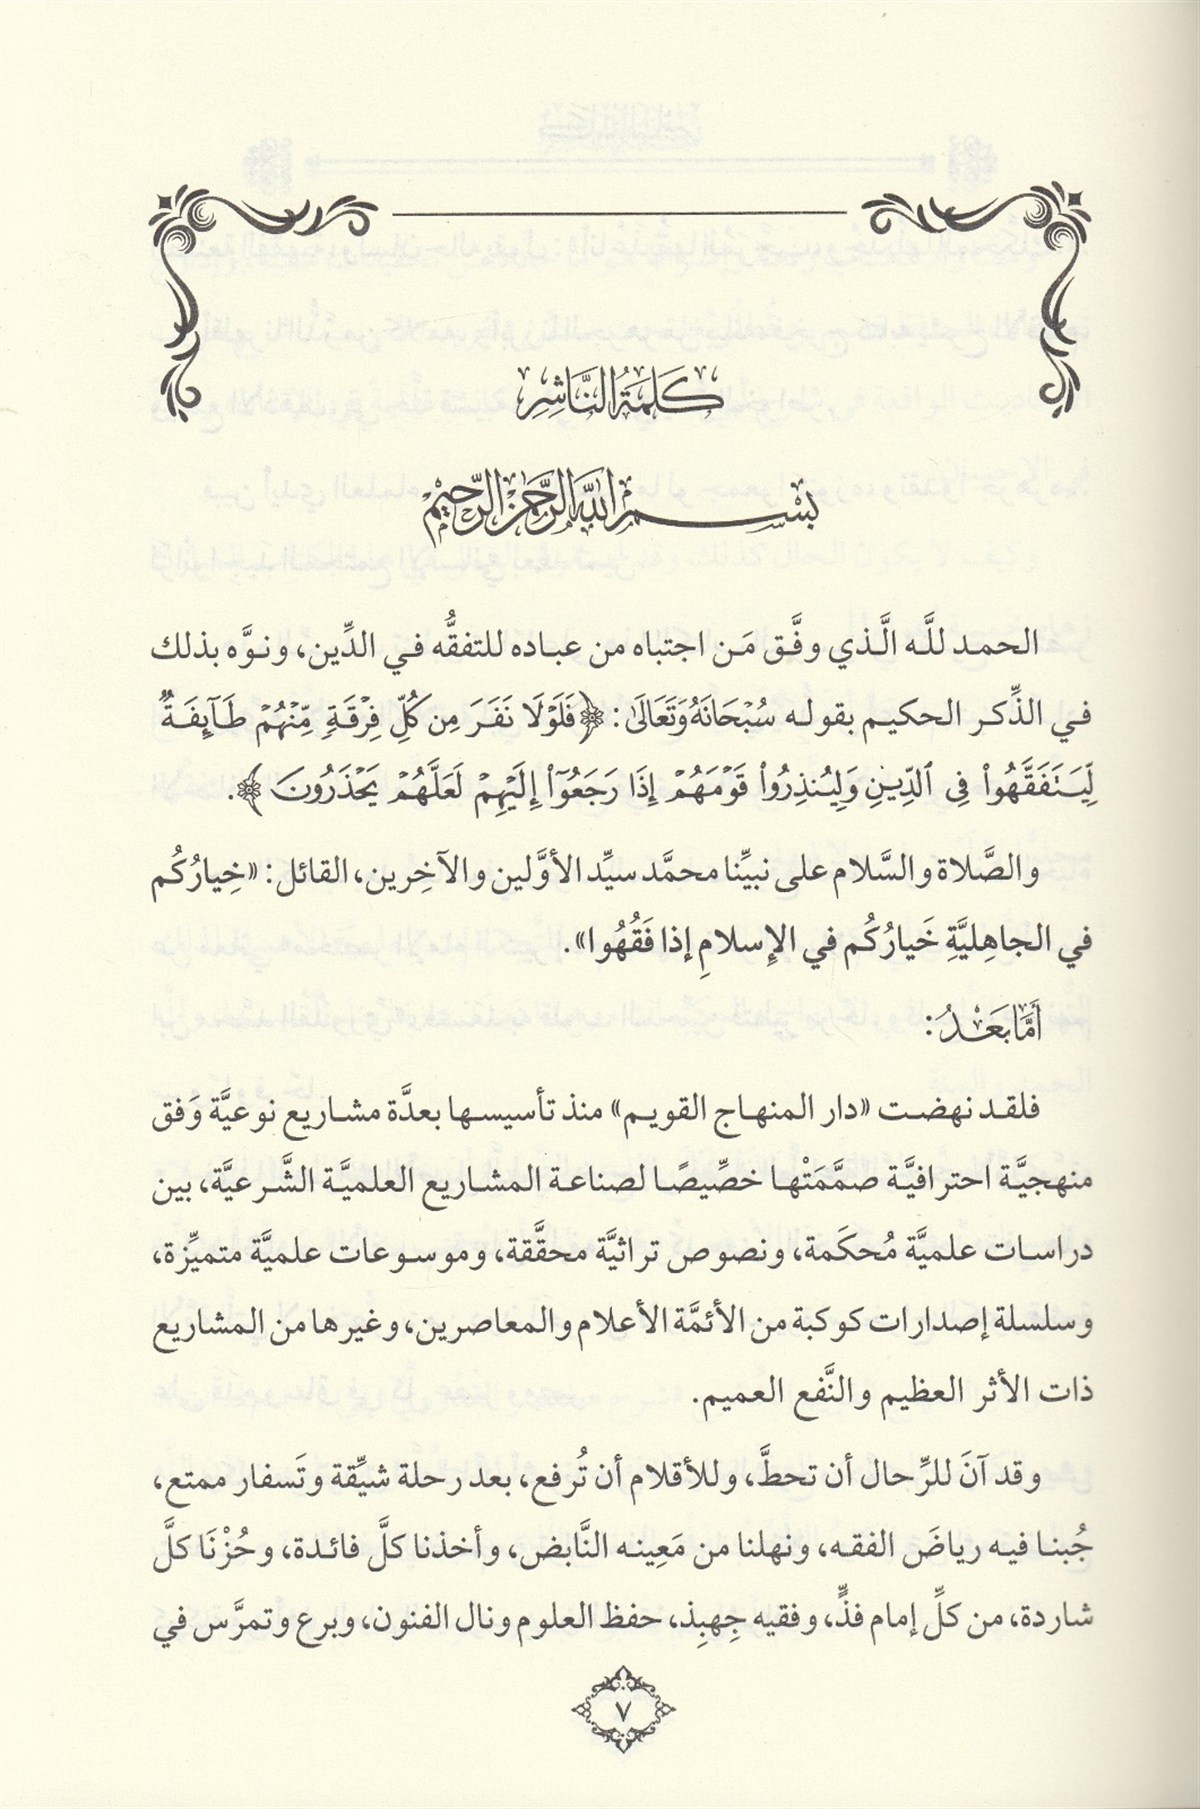 كَلِمَةُ النَّاشِرِ
بِسْمِ اللَّهِ الرَّحْمَنِ الرَّحِيمِ
الحمد للَّه الَّذي وفَّق مَن اجتباه من عباده للتفقُّه في الدِّين، ونوَّه بذلك
في الذِّكر الحكيم بقوله سُبْحَانَهُ وَتَعَالَىٰ: ﴿فَلَوۡلَا نَفَرَ مِن كُلِّ فِرۡقَةٖ مِّنۡهُمۡ طَآئِفَةٞ
لِّيَتَفَقَّهُواْ فِي ٱلدِّينِ وَلِيُنذِرُواْ قَوۡمَهُمۡ إِذَا رَجَعُوٓاْ إِلَيۡهِمۡ لَعَلَّهُمۡ يَحۡذَرُونَ﴾.
والصَّلاة والسَّلام على نبيِّنا محمَّد سيِّد الأوَّلين والآخِرين، القائل: «خِيارُكُم
في الجاهِليَّةِ خَيارُكُم في الإِسلامِ إذا فَقُهُوا».
أَمَّا بَعْدُ:
فلقد نهضت «دار المنهاج القويم» منذ تأسيسها بعدَّة مشاريع نوعيَّة وَفق
منهجيَّة احترافيَّة صمَّمَتْها خصِّيصًا لصناعة المشاريع العلميَّة الشَّرعيَّة، بين
دراسات علميَّة مُحكَمة، ونصوص تراثيَّة محقَّقة، وموسوعات علميَّة متميِّزة،
وسلسلة إصدارات كوكبة من الأئمَّة الأعلام والمعاصرين، وغيرها من المشاريع
ذات الأثر العظيم والنَّفع العميم.
وقد آنَ للرِّحال أن تحطَّ، وللأقلام أن تُرفع، بعد رحلة شيِّقة وتَسفار ممتع،
جُبنا فيه رياضَ الفقه، ونهلنا من مَعِينه النَّابض، وأخذنا كلَّ فائدة، وحُزْنَا كلَّ
شاردة، من كلِّ إمام فذٍّ، وفقيه جِهبِذ، حفظ العلوم ونال الفنون، وبرع وتمرَّس في
٧